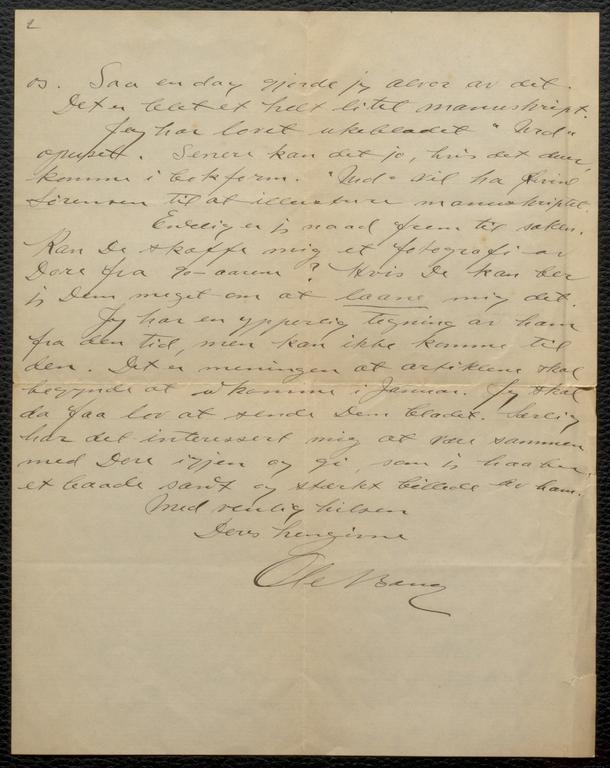 2
os. Saa en dag gjorde jeg alvor av det.
Det er blet et helt litet manuskript.
Jeg har lovet ukebladet "Urd"
opuset. Senere kan det jo, hvis det duer,
komme i bokform. "Urd" vil ha
Sørensen til at illustrere manuskriptet.
Endelig er jeg naad frem til saken.
Kan De skaffe mig et fotografi av
Dore fra 90-aarene? Hvis De kan ber
jeg Dem meget om at laane mig det.
Jeg har en ypperlig tegning av ham
fra den tid, men kan ikke komme til
den. Det er meningen at artiklene skal
begynde at utkomme i Januar. Jeg skal
da faa lov at sende Dem bladet. Særlig
har det interessert mig at være sammen
med Dore igjen og gi, som jeg haaber,
et baade sandt og sterkt billede av ham.
Med venlig hilsen
Deres hengivne
Ole Bang